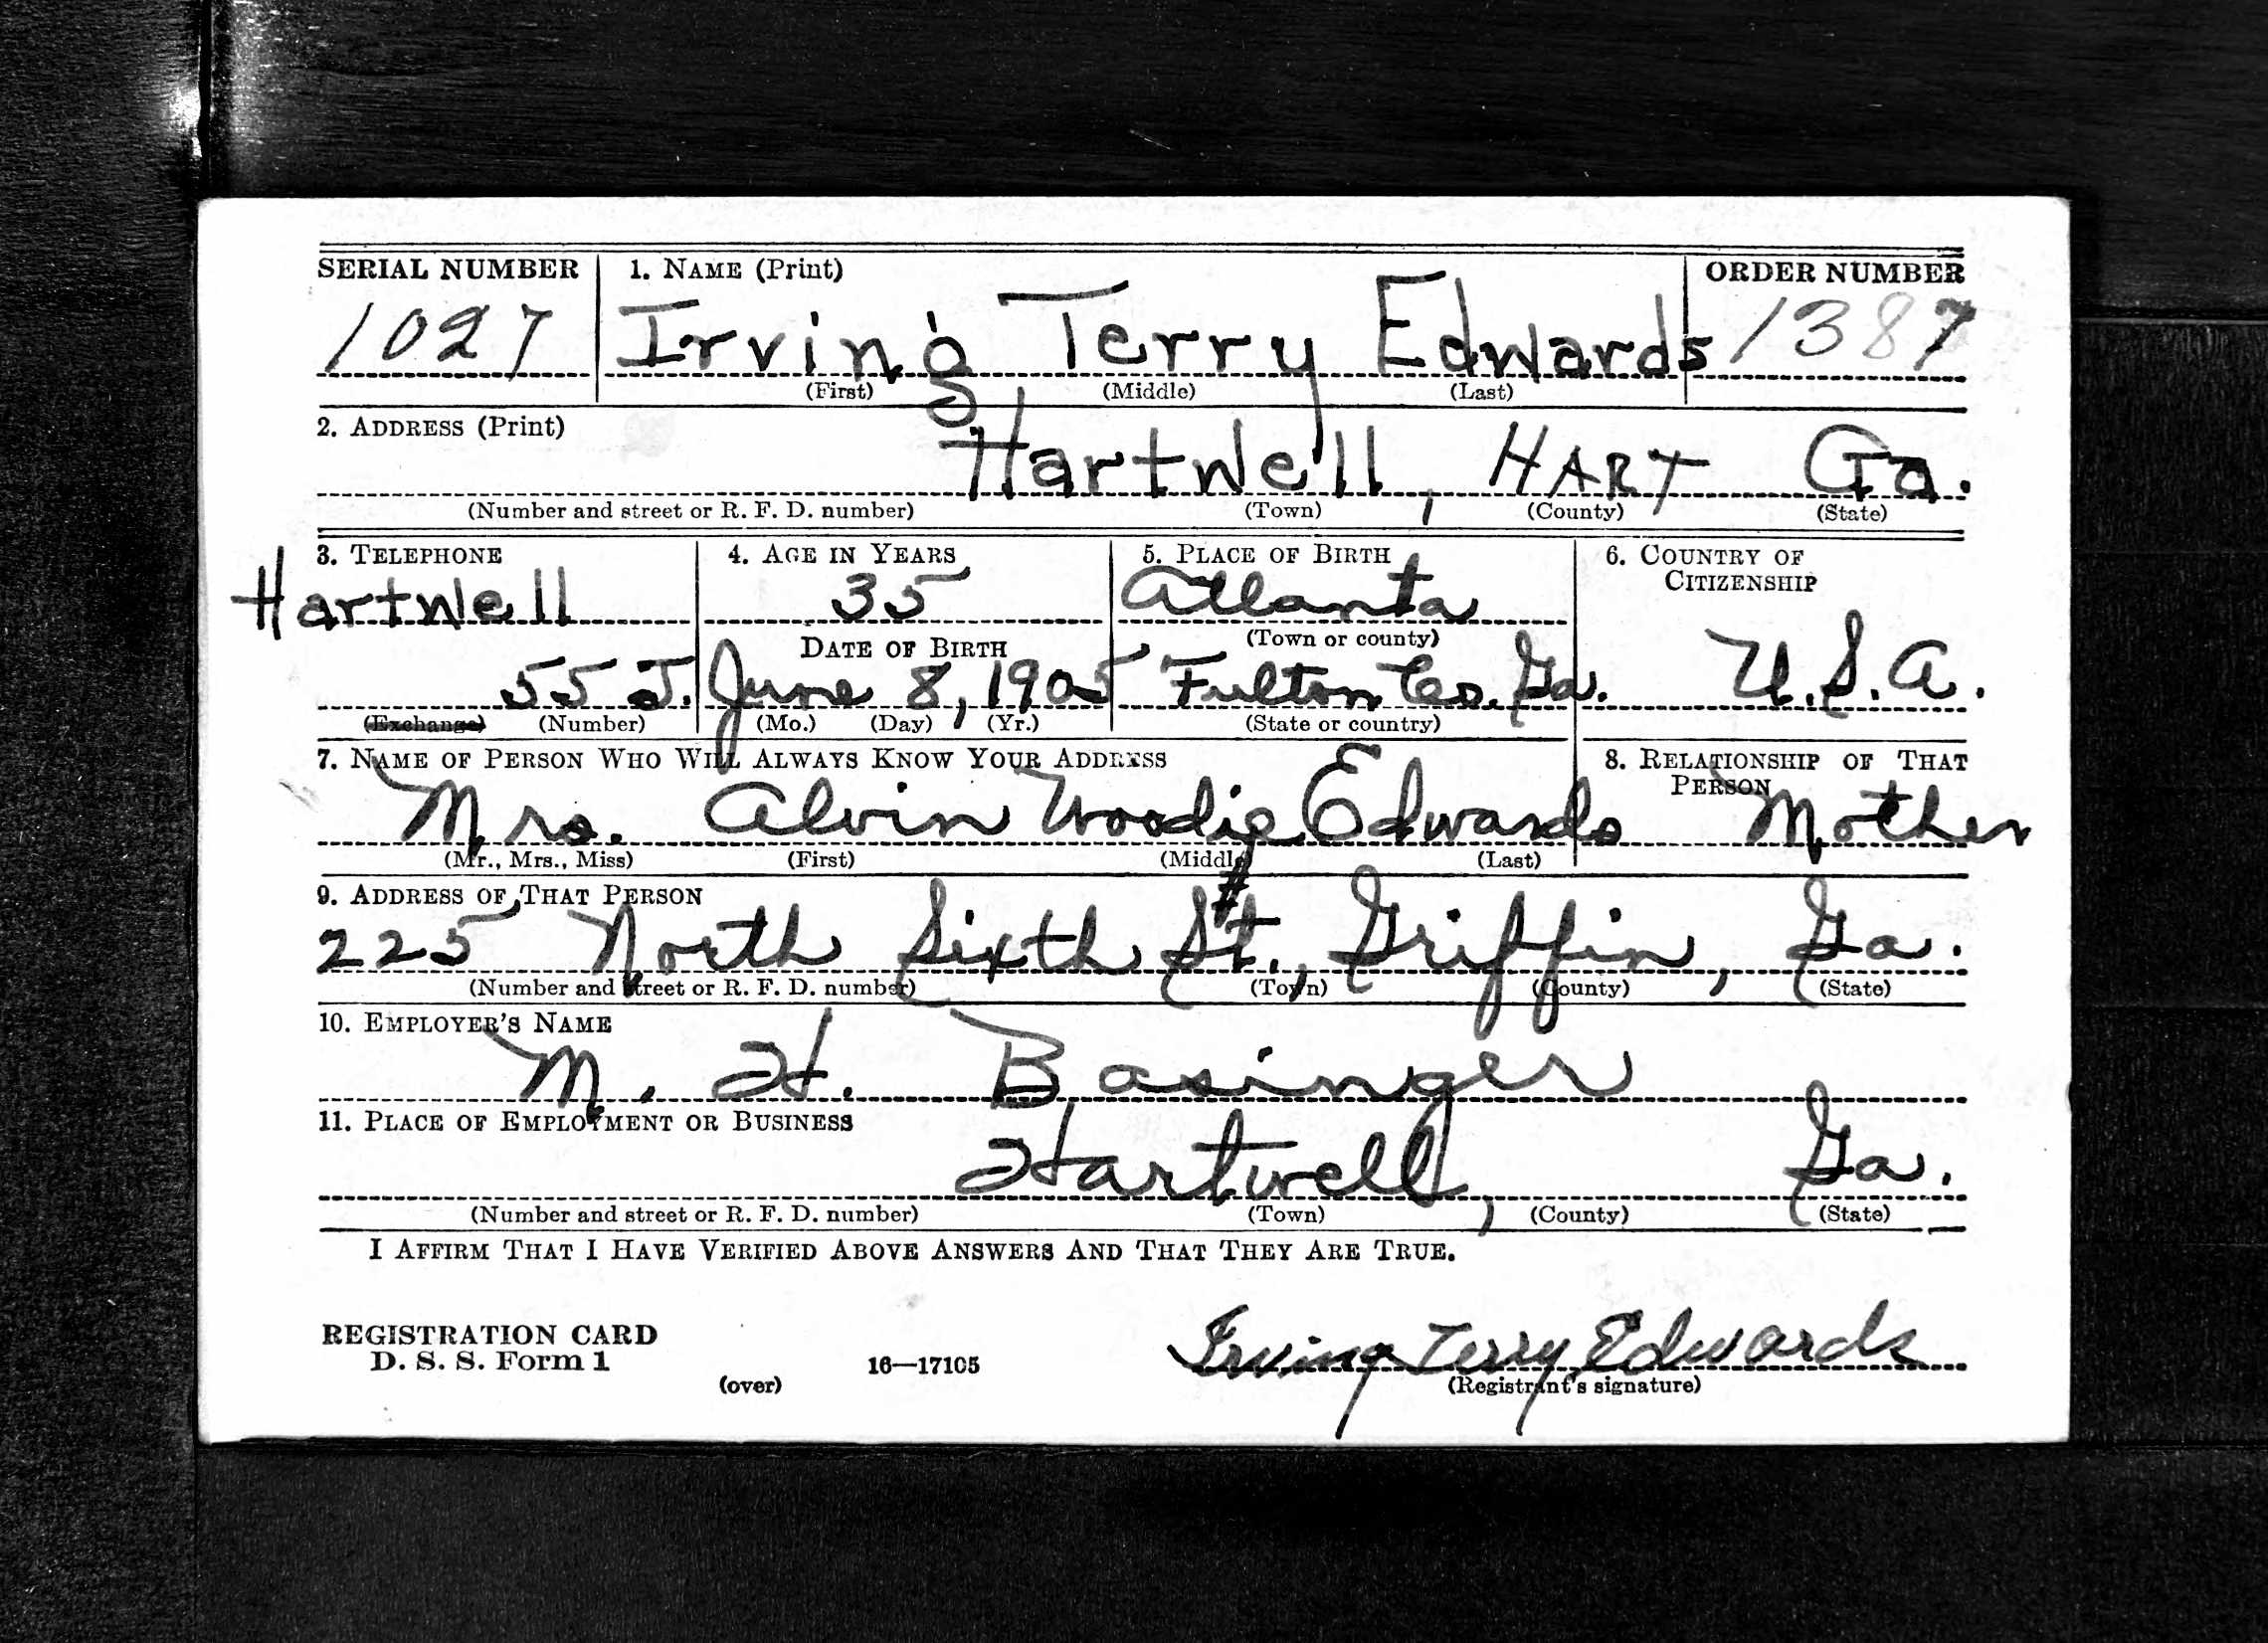 SERIAL NUMBER 1. NAME (Print) ORDER NUMBER
1027 Irving Terry Edwards 1387
(First) (Middle) (Last)
2. ADDRESS (Print)
Hartwell, HART Ga.
(Number and street or R. F. D. number) (Town) (County) (State)
3. TELEPHONE 4. AGE IN YEARS 5. PLACE OF BIRTH 6. COUNTRY OF
CITIZENSHIP
Hartwell 35 Atlanta
DATE OF BIRTH (Town or county)
55 J. June 8, 1905 Fulton Co. Ga. U.S.A.
(Exchange) (Number) (Mo.) (Day) (Yr.) (State or country)
7. NAME OF PERSON WHO WILL ALWAYS KNOW YOUR ADDRESS 8. RELATIONSHIP OF THAT
PERSON
Mrs. Alvin Woodie Edwards Mother
(Mr., Mrs., Miss) (First) (Middle) (Last)
9. ADDRESS OF THAT PERSON
225 North Sixth St., Griffin, Ga.
(Number and street or R. F. D. number) (Town) (County) (State)
10. EMPLOYER'S NAME
M. H. Basinger
11. PLACE OF EMPLOYMENT OR BUSINESS
Hartwell, Ga.
(Number and street or R. F. D. number) (Town) (County) (State)
I AFFIRM THAT I HAVE VERIFIED ABOVE ANSWERS AND THAT THEY ARE TRUE.
REGISTRATION CARD
D. S. S. Form 1 16—17105 Irving Terry Edwards
(over) (Registrant's signature)